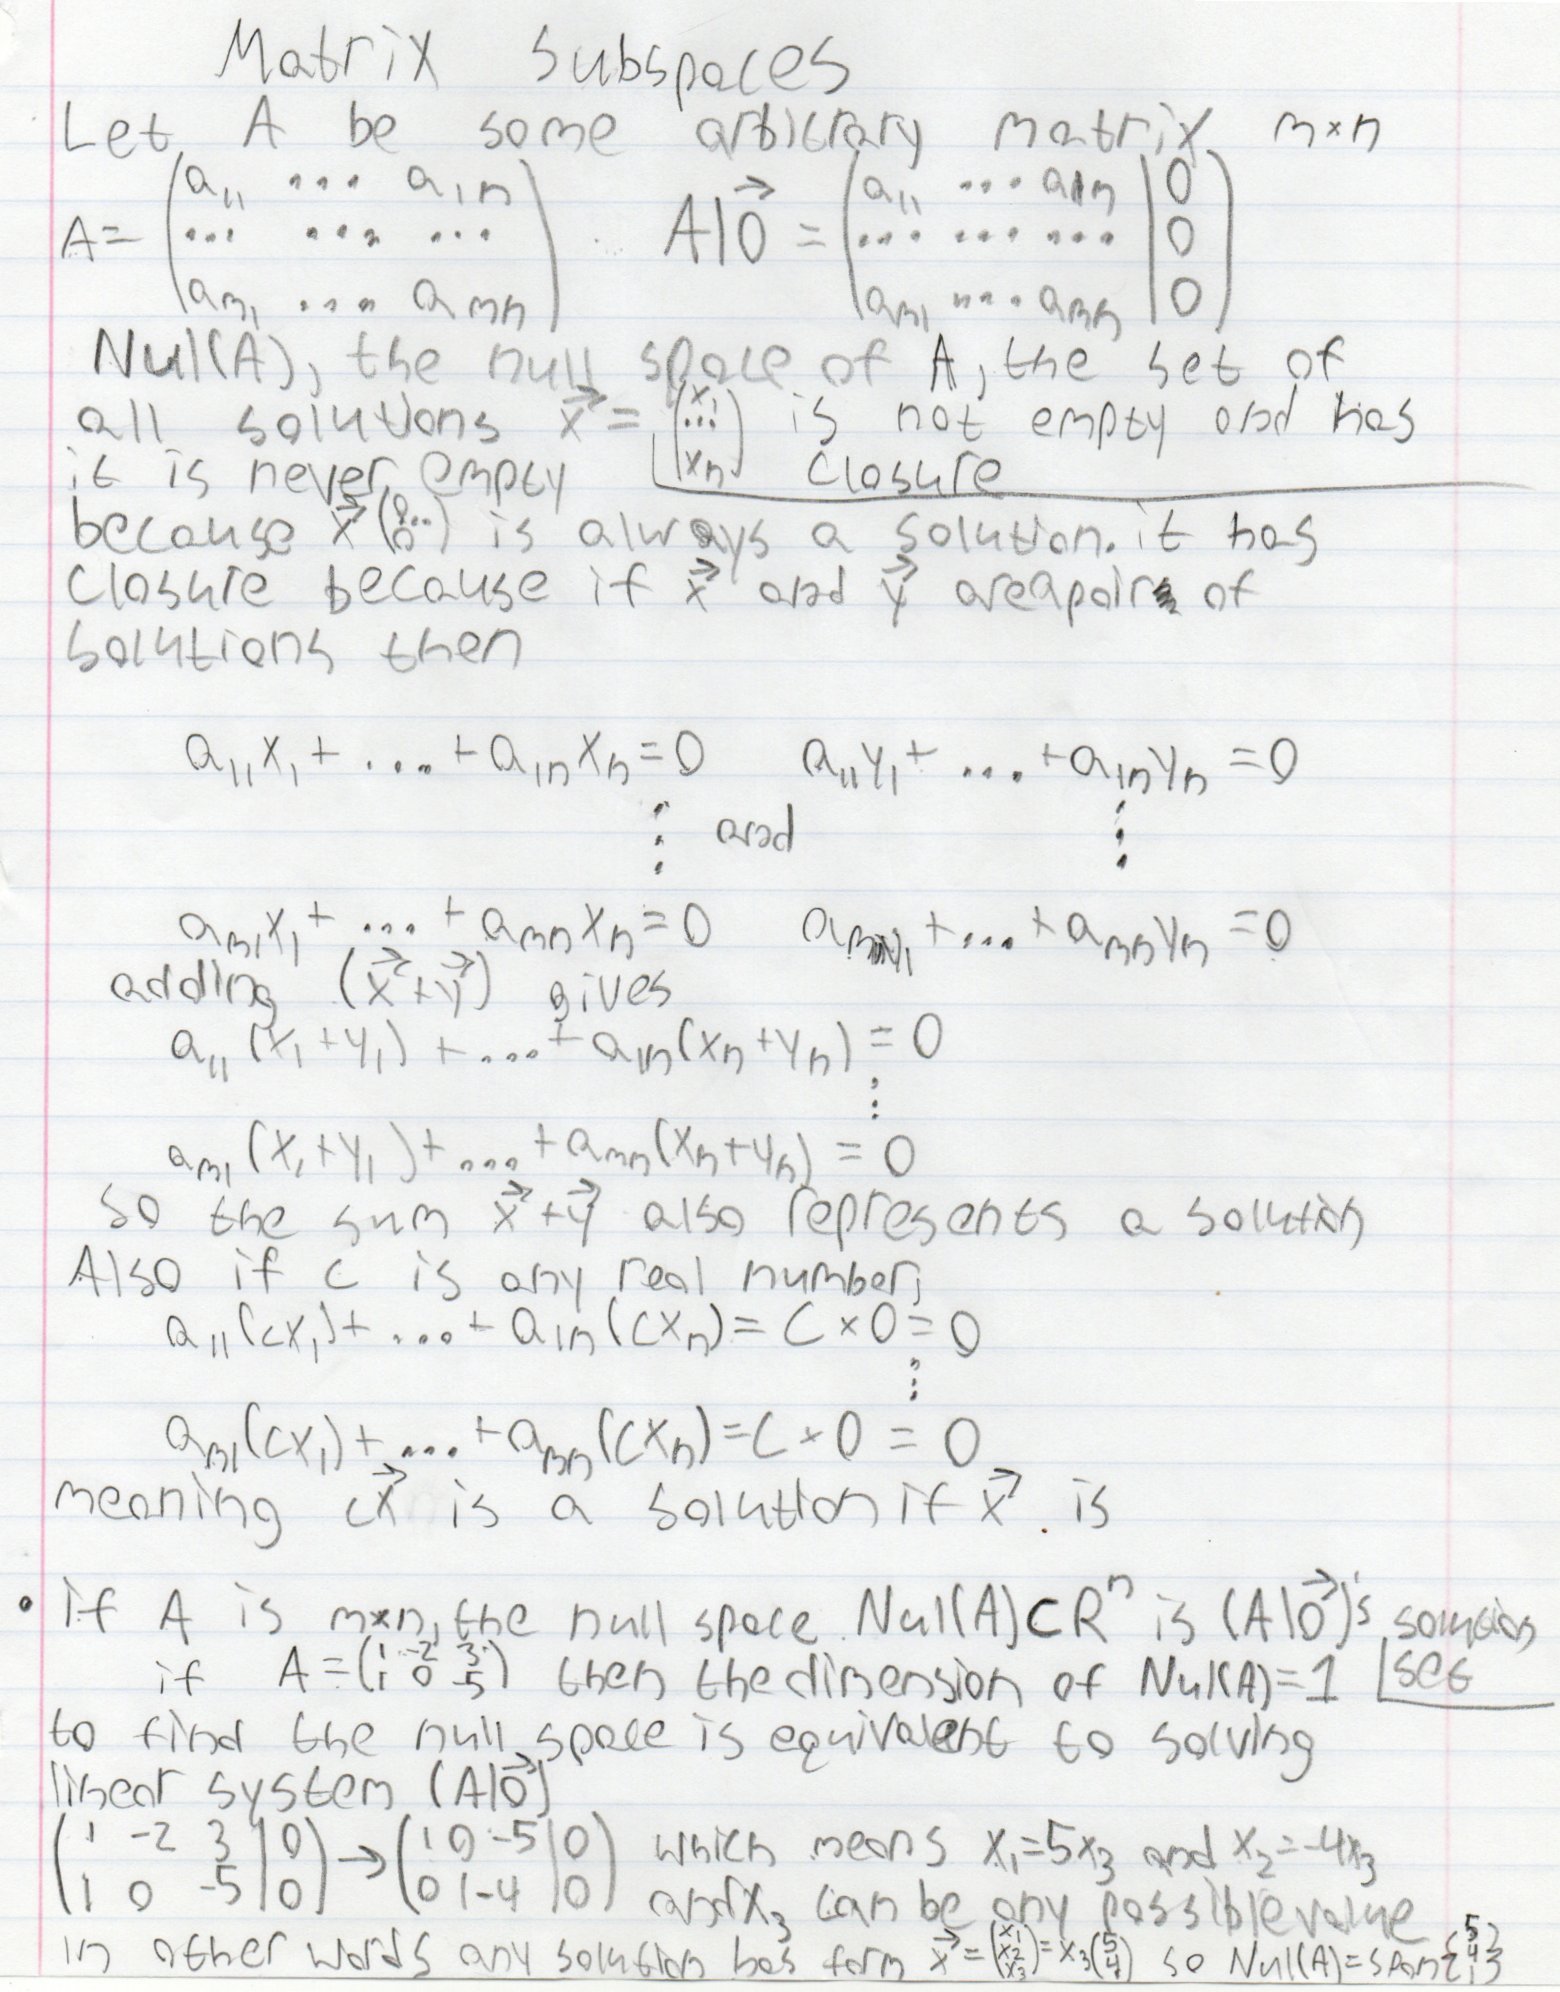 Matrix Subspaces
Let A be some arbitrary matrix m×n
A = (a₁₁ ... a₁ₙ ... ... ... aₘ₁ ... aₘₙ) A|0⃗ = (a₁₁ ... a₁ₙ | 0 ... ... ... | 0 aₘ₁ ... aₘₙ | 0)
Nul(A), the null space of A, the set of
all solutions x⃗ = (x₁ ... xₙ) is not empty and has
closure
it is never empty
because x⃗ (0 ... 0) is always a solution. it has
closure because if x⃗ and y⃗ are a pair of
solutions then
a₁₁x₁ + .... + a₁ₙxₙ = 0 a₁₁y₁ + .... + a₁ₙyₙ = 0
⋮ and ⋮
aₘ₁x₁ + .... + aₘₙxₙ = 0 aₘ₁y₁ + .... + aₘₙyₙ = 0
adding (x⃗ + y⃗) gives
a₁₁(x₁ + y₁) + .... + a₁ₙ(xₙ + yₙ) = 0
⋮
aₘ₁(x₁ + y₁) + .... + aₘₙ(xₙ + yₙ) = 0
so the sum x⃗ + y⃗ also represents a solution
Also if c is any real number,
a₁₁(cx₁) + .... + a₁ₙ(cxₙ) = C × 0 = 0
⋮
aₘ₁(cx₁) + .... + aₘₙ(cxₙ) = C × 0 = 0
meaning cx⃗ is a solution if x⃗ is
• if A is m×n, the null space Nul(A) ⊂ Rⁿ is (A|0⃗)'s solution
set
if A = (1 -2 3 1 0 -5) then the dimension of Nul(A) = 1
to find the null space is equivalent to solving
linear system (A|0⃗)
(1 -2 3 | 0 1 0 -5 | 0) → (1 0 -5 | 0 0 1 -4 | 0) which means x₁ = 5x₃ and x₂ = -4x₃
and x₃ can be any possible value
in other words any solution has form x⃗ = (x₁ x₂ x₃) = x₃(5 4 1) so Nul(A) = span{5 4 1}